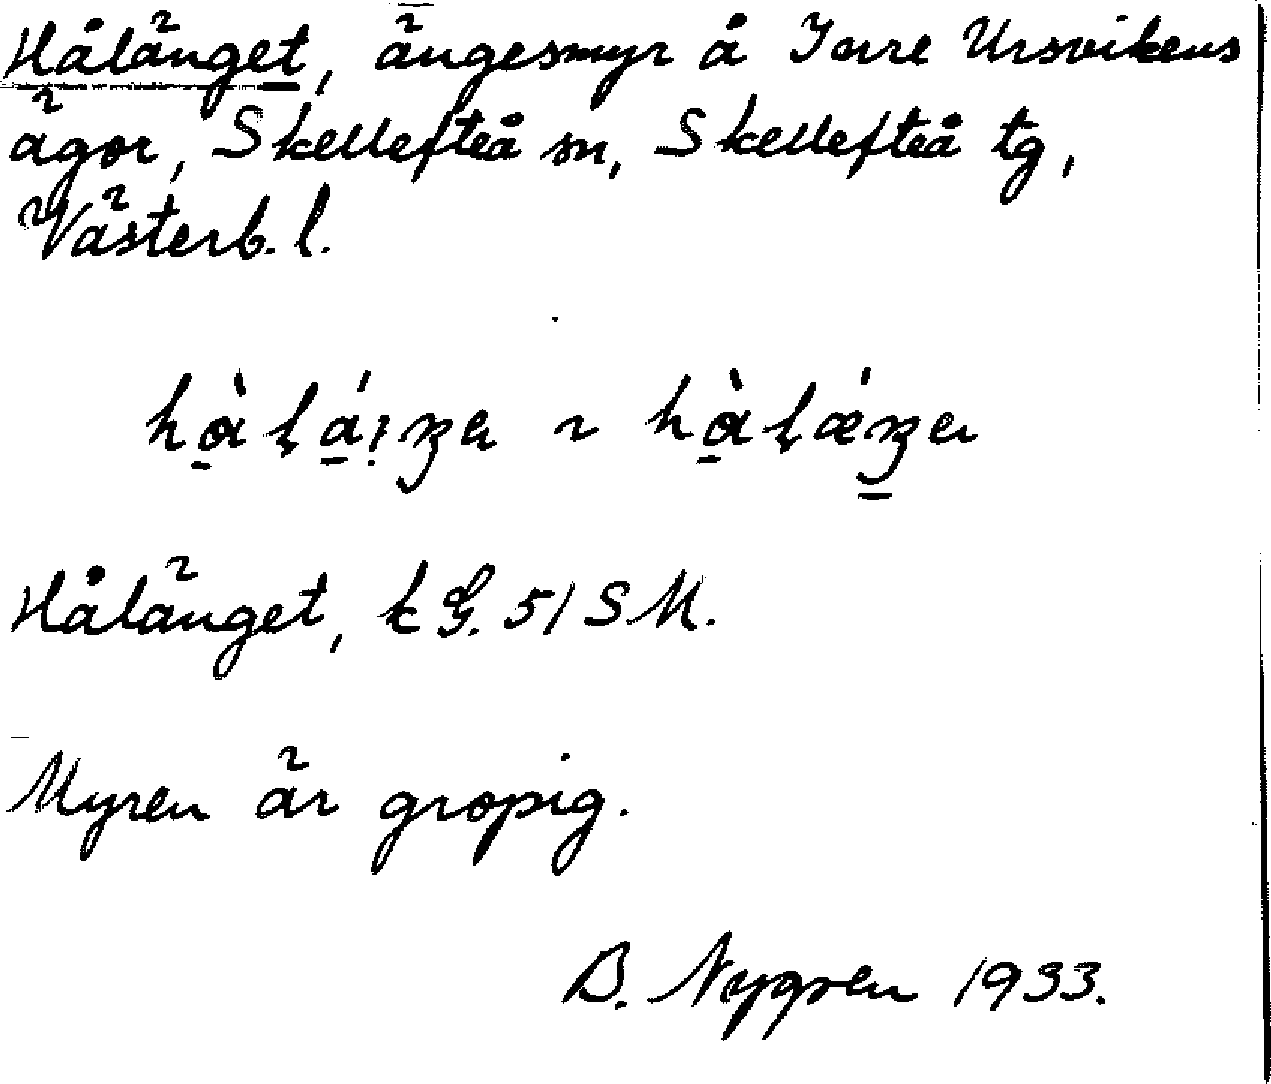 Hålänget, ängesmyr å Yttre Ursvikens
ägor, Skellefteå sn, Skellefteå tg,
Västerb. l.
Hålänget, kG. 51 SM.
Myren är gropig.
B. Nygren 1933.